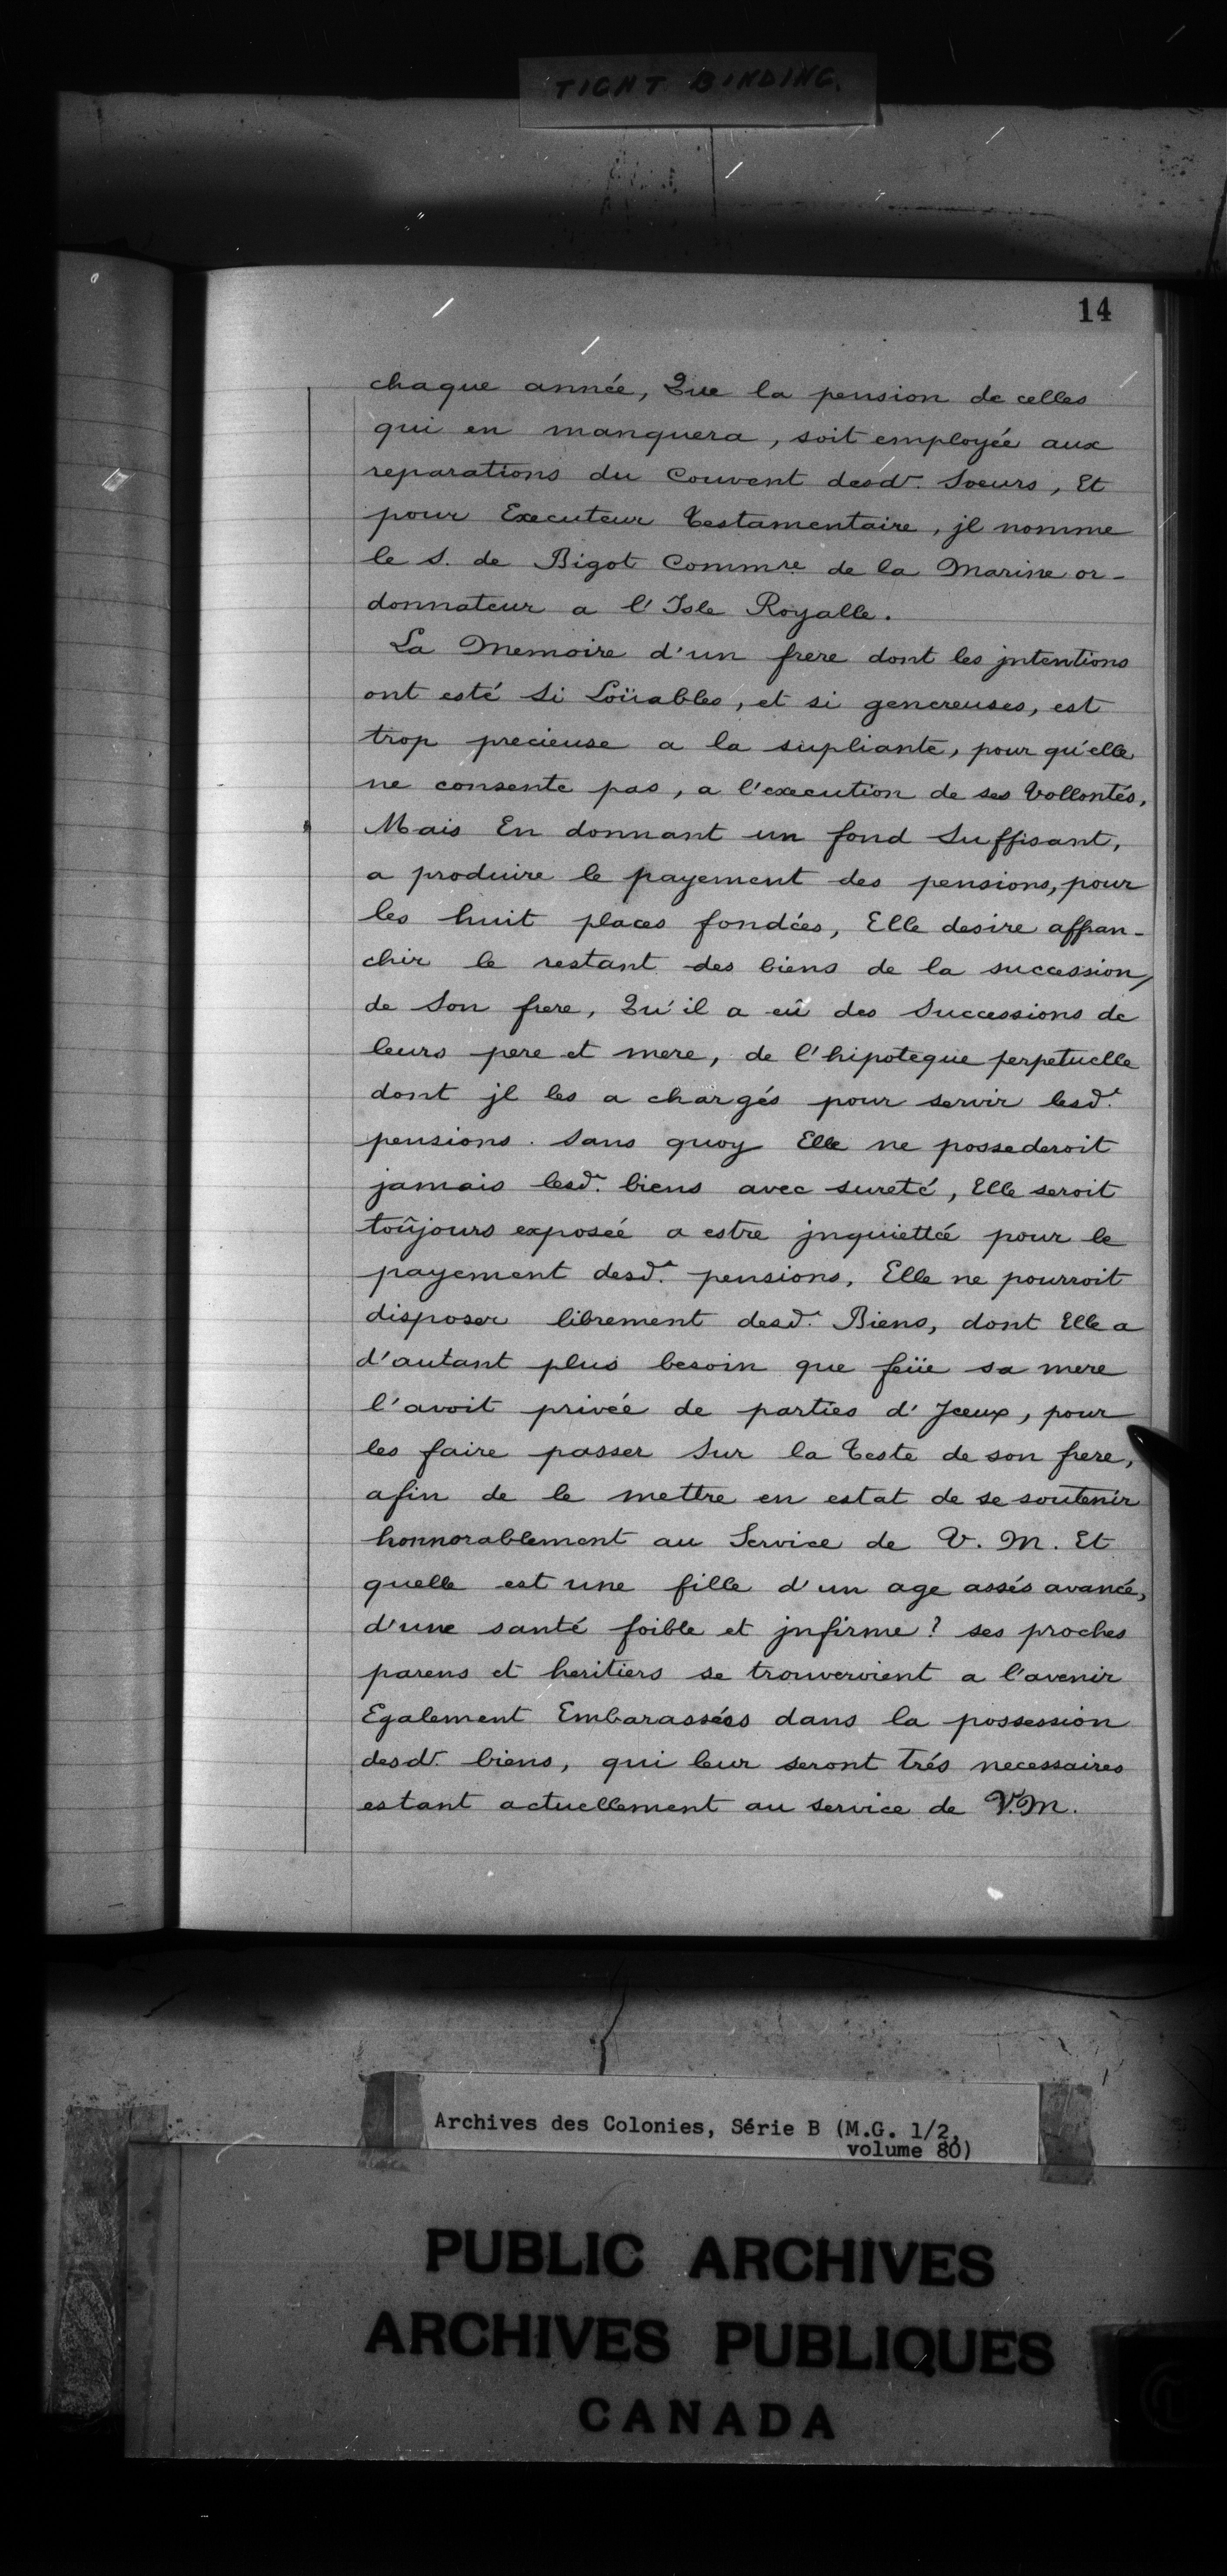 TIGHT BINDING.
14
chaque année, Que la pension de celles
qui en manquera, soit employée aux
reparations du Couvent desd. Soeurs, Et
pour Executeur Testamentaire, jl nomme
le S. de Bigot Commre de la Marine or-
donnateur a l'Isle Royalle.
La Memoire d'un frere dont les jntentions
ont esté Si Loüables, et si genereuses, est
trop precieuse a la supliante, pour qu'elle
ne consente pas, a l'execution de ses Vollontés,
Mais En donnant un fond Suffisant,
a produire le payement des pensions, pour
les huit places fondées, Elle desire affran-
chir le restant des biens de la succession
de Son frere, Qu'il a eû des Successions de
leurs pere et mere, de l'hipoteque perpetuelle
dont jl les a chargés pour servir lesd.
pensions. Sans quoy Elle ne possederoit
jamais lesd. biens avec sureté, Elle seroit
toûjours exposée a estre jnquiettée pour le
payement desd. pensions, Elle ne pourroit
disposer librement desd. Biens, dont Elle a
d'autant plus besoin que feüe sa mere
l'avoit privée de parties d'Jceux, pour
les faire passer Sur la Teste de son frere,
afin de le mettre en estat de se soutenir
honnorablement au Service de V. M. Et
quelle est une fille d'un age assés avancé,
d'une santé foible et jnfirme? ses proches
parens et heritiers se trouveroient a l'avenir
Egalement Embarassées dans la possession
desd. biens, qui leur seront trés necessaires
estant actuellement au service de V.M.
Archives des Colonies, Série B (M.G. 1/2,
volume 80)
PUBLIC ARCHIVES
ARCHIVES PUBLIQUES
CANADA